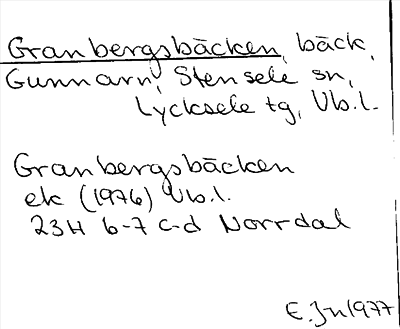 Granbergsbäcken, bäck,
Gunnarn, Stensele sn,
Lycksele tg, Vb.l.
Granbergsbäcken
ek (1976) Vb.l.
23H 6-7 c-d Norrdal
E.Jn 1977